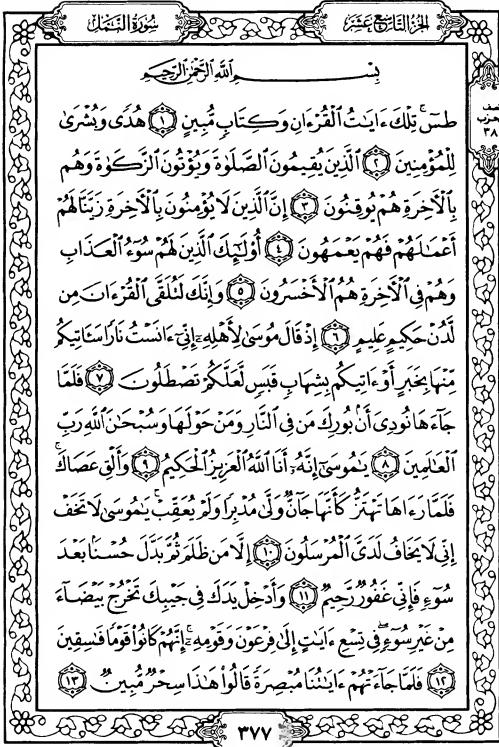 الجزء التاسع عشر
سورة النمل
بِسْمِ ٱللَّهِ ٱلرَّحْمَٰنِ ٱلرَّحِيمِ
طسٓۚ تِلْكَ ءَايَٰتُ ٱلْقُرْءَانِ وَكِتَابٍ مُّبِينٍ ١ هُدًى وَبُشْرَىٰ
لِلْمُؤْمِنِينَ ٢ ٱلَّذِينَ يُقِيمُونَ ٱلصَّلَوٰةَ وَيُؤْتُونَ ٱلزَّكَوٰةَ وَهُم
بِٱلْءَاخِرَةِ هُمْ يُوقِنُونَ ٣ إِنَّ ٱلَّذِينَ لَا يُؤْمِنُونَ بِٱلْءَاخِرَةِ زَيَّنَّا لَهُمْ
أَعْمَٰلَهُمْ فَهُمْ يَعْمَهُونَ ٤ أُو۟لَٰٓئِكَ ٱلَّذِينَ لَهُمْ سُوٓءُ ٱلْعَذَابِ
وَهُمْ فِى ٱلْءَاخِرَةِ هُمُ ٱلْأَخْسَرُونَ ٥ وَإِنَّكَ لَتُلَقَّى ٱلْقُرْءَانَ مِن
لَّدُنْ حَكِيمٍ عَلِيمٍ ٦ إِذْ قَالَ مُوسَىٰ لِأَهْلِهِۦٓ إِنِّىٓ ءَانَسْتُ نَارًا سَـَٔاتِيكُم
مِّنْهَا بِخَبَرٍ أَوْ ءَاتِيكُم بِشِهَابٍ قَبَسٍ لَّعَلَّكُمْ تَصْطَلُونَ ٧ فَلَمَّا
جَآءَهَا نُودِىَ أَنۢ بُورِكَ مَن فِى ٱلنَّارِ وَمَنْ حَوْلَهَا وَسُبْحَٰنَ ٱللَّهِ رَبِّ
ٱلْعَٰلَمِينَ ٨ يَٰمُوسَىٰٓ إِنَّهُۥٓ أَنَا ٱللَّهُ ٱلْعَزِيزُ ٱلْحَكِيمُ ٩ وَأَلْقِ عَصَاكَۚ
فَلَمَّا رَءَاهَا تَهْتَزُّ كَأَنَّهَا جَآنٌّ وَلَّىٰ مُدْبِرًا وَلَمْ يُعَقِّبْۚ يَٰمُوسَىٰ لَا تَخَفْ
إِنِّى لَا يَخَافُ لَدَىَّ ٱلْمُرْسَلُونَ ١٠ إِلَّا مَن ظَلَمَ ثُمَّ بَدَّلَ حُسْنًۢا بَعْدَ
سُوٓءٍ فَإِنِّى غَفُورٌ رَّحِيمٌ ١١ وَأَدْخِلْ يَدَكَ فِى جَيْبِكَ تَخْرُجْ بَيْضَآءَ
مِنْ غَيْرِ سُوٓءٍۖ فِى تِسْعِ ءَايَٰتٍ إِلَىٰ فِرْعَوْنَ وَقَوْمِهِۦٓۚ إِنَّهُمْ كَانُوا۟ قَوْمًا فَٰسِقِينَ
١٢ فَلَمَّا جَآءَتْهُمْ ءَايَٰتُنَا مُبْصِرَةً قَالُوا۟ هَٰذَا سِحْرٌ مُّبِينٌ ١٣
٣٨
٣٧٧